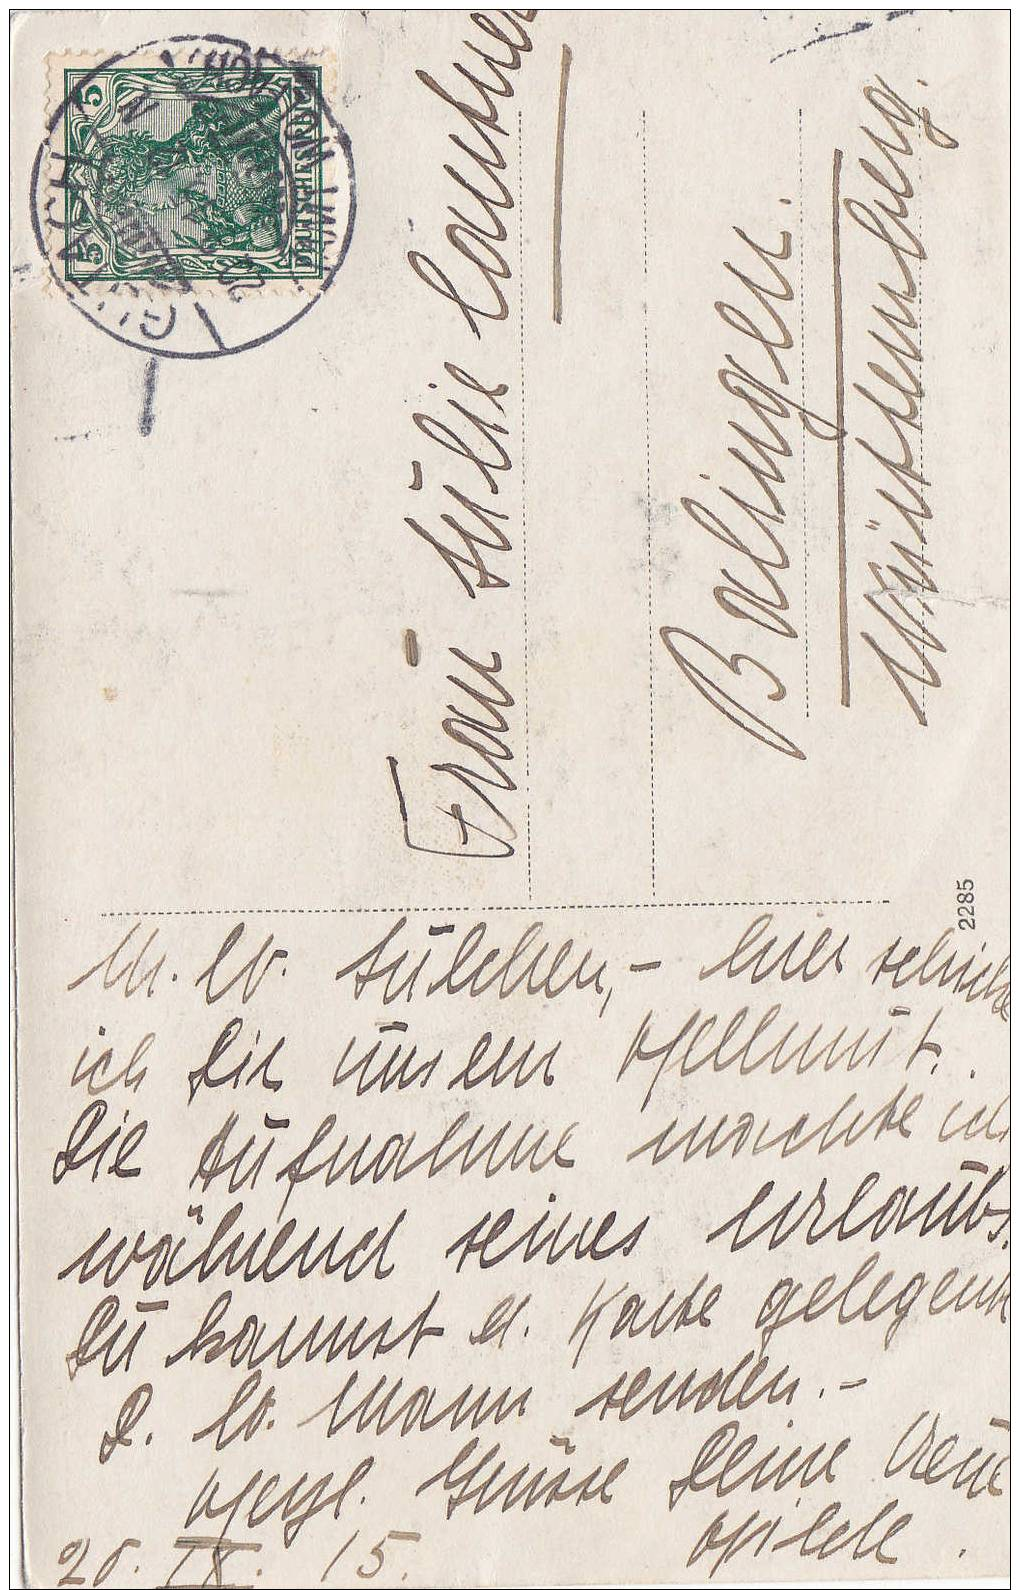 5 5
DEUTSCHES REICH
Frau Julie Lautner
Balingen.
Württemberg.
2285
M. lb. Julchen, - hier schicke
ich Dir unsern Hellmut.
Die Aufnahme machte ich
während seines Urlaubs.
Du kannst d. Karte gelegentl.
D. lb. Mann senden. -
Herzl. Grüsse Deine treue
Hilde.
20. IX. 15.